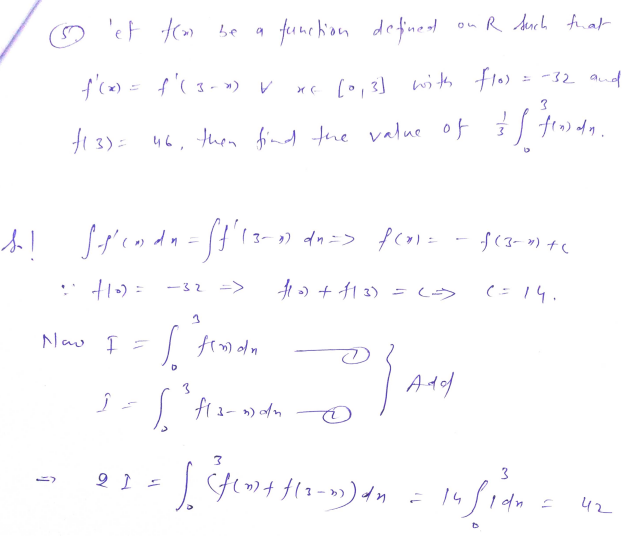 ⑤ 'et f(x) be a function defined on R such that
f'(x) = f'(3-x) ∀ x ∈ [0,3] with f(0) = -32 and
f(3) = 46, then find the value of 1/3 ∫₀³ f(x) dx.
S.! ∫f'(x) dx = ∫f'(3-x) dx => f(x) = - f(3-x) + c
∵ f(0) = -32 => f(0) + f(3) = c => c = 14.
Now I = ∫₀³ f(x) dx — ①
I = ∫₀³ f(3-x) dx — ② } Add
=> 2I = ∫₀³ (f(x) + f(3-x)) dx = 14 ∫₀³ 1 dx = 42